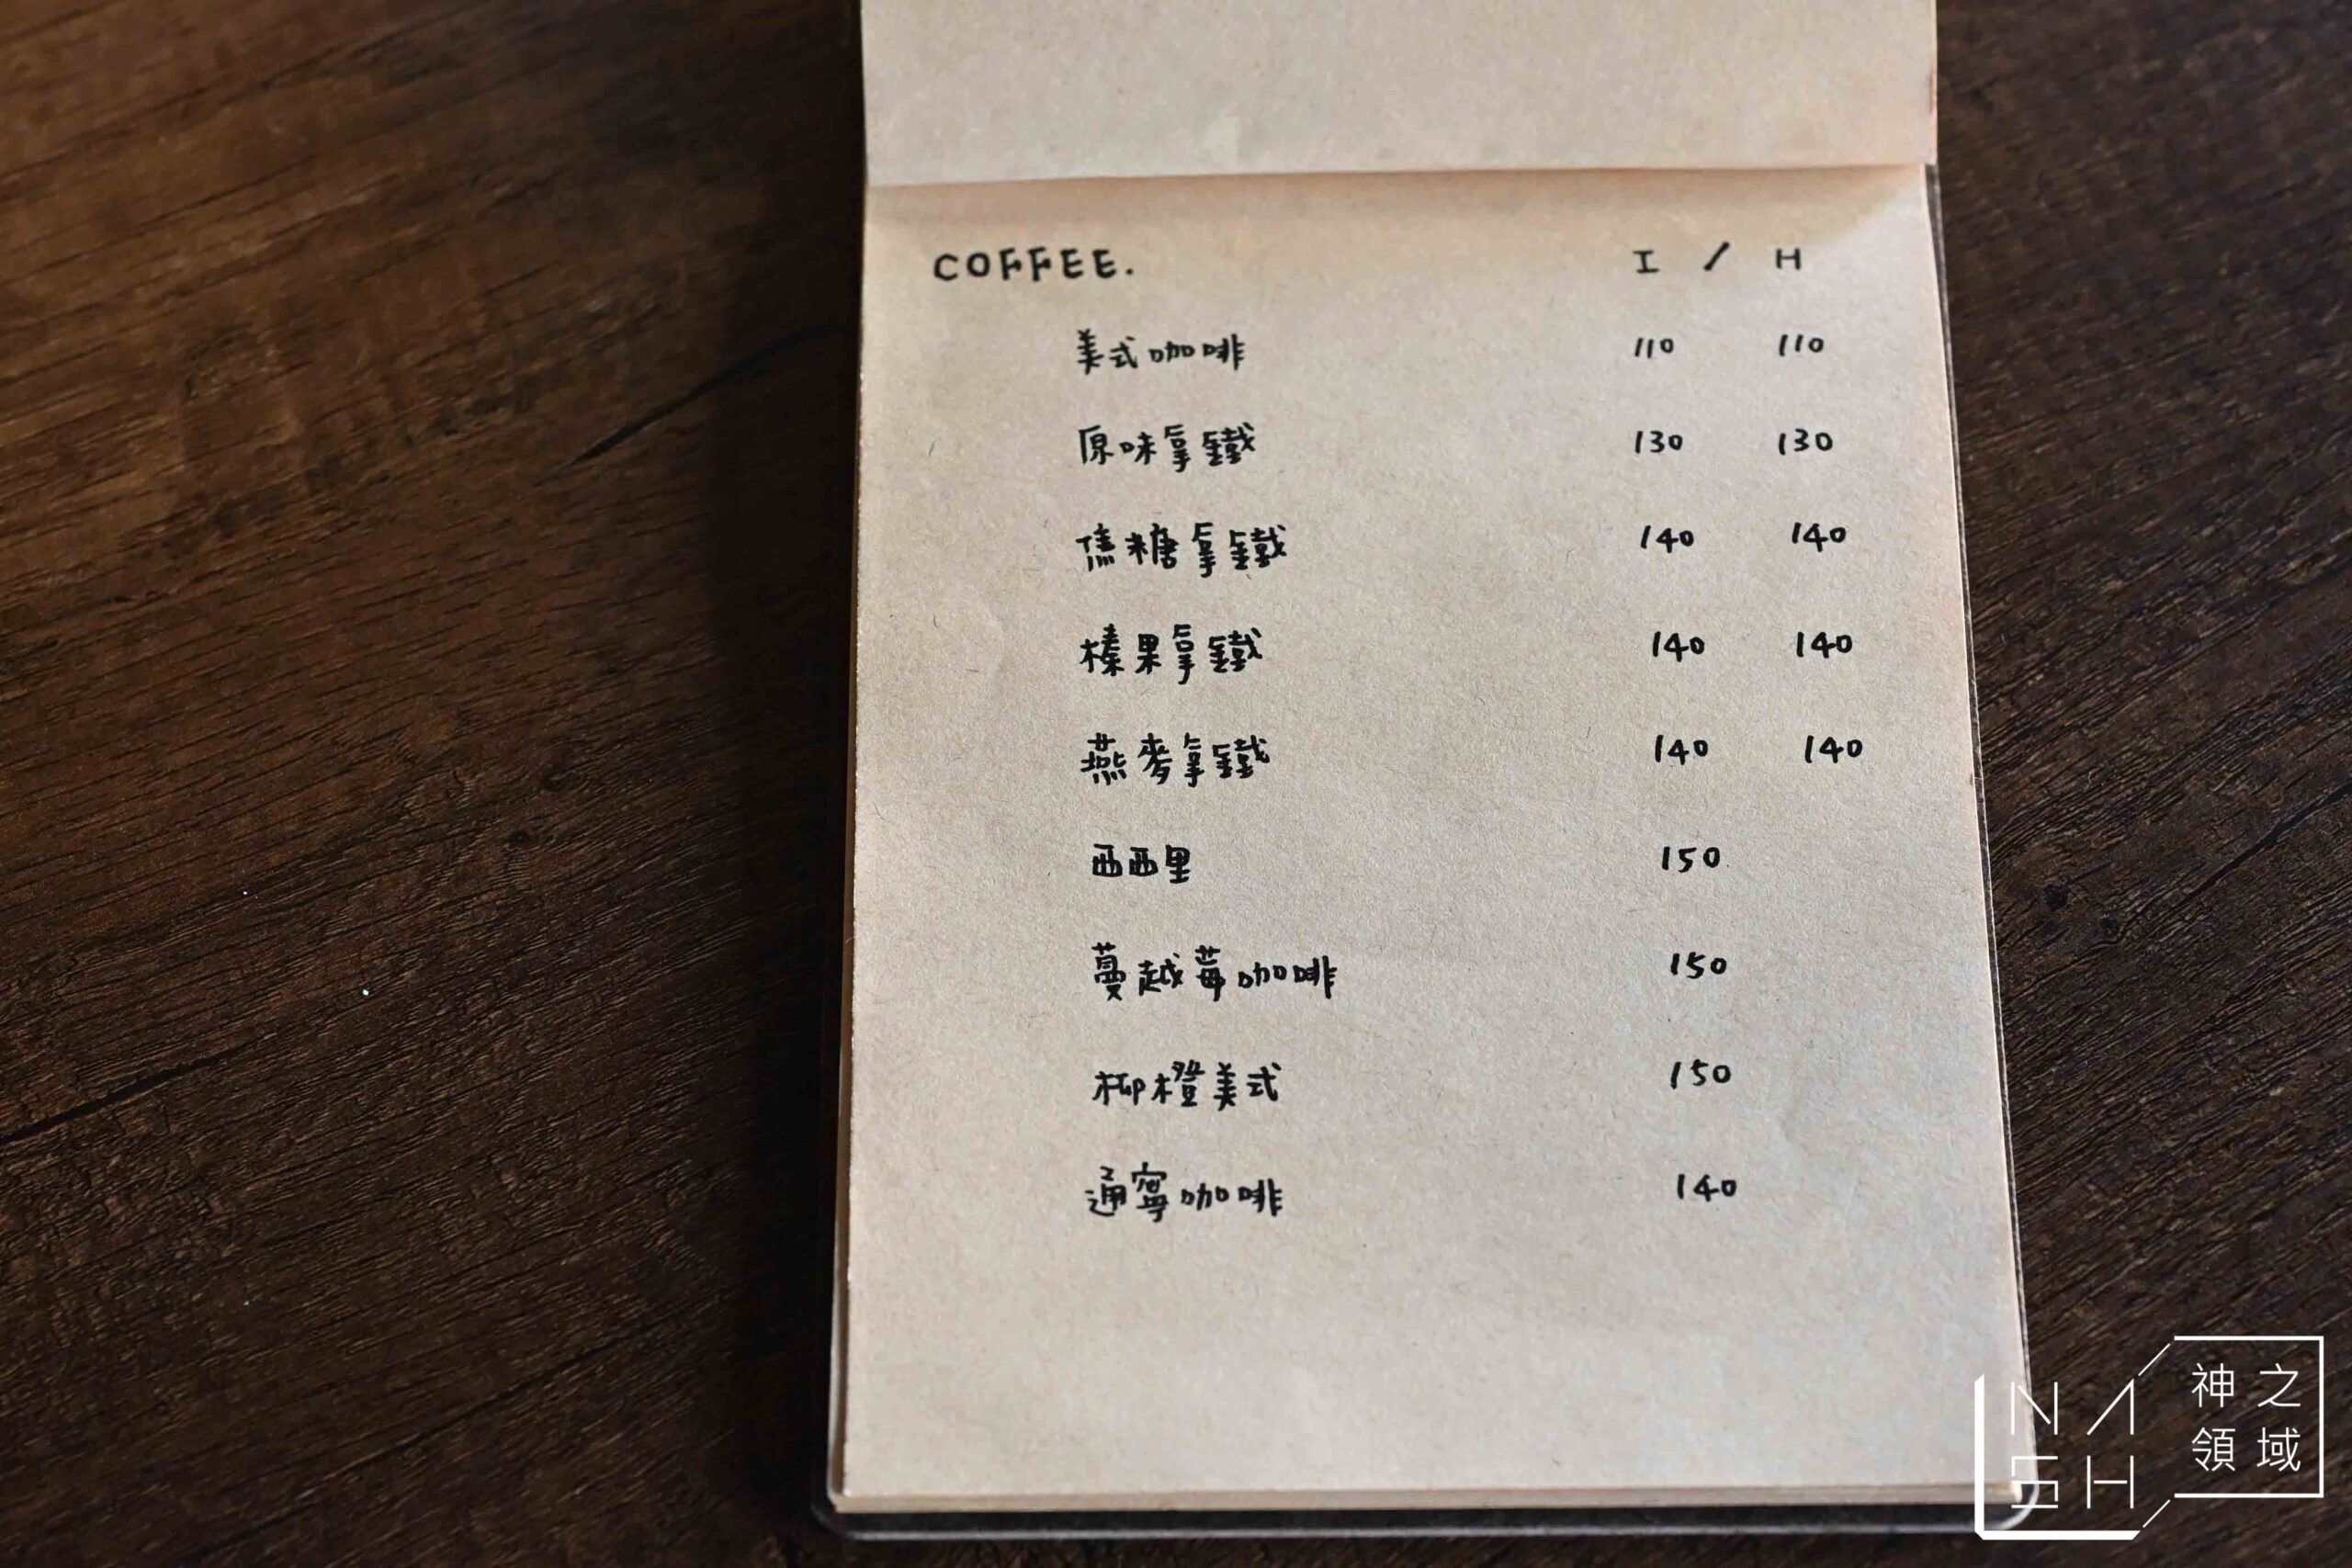 COFFEE. I / H
美式咖啡 110 110
原味拿鐵 130 130
焦糖拿鐵 140 140
榛果拿鐵 140 140
燕麥拿鐵 140 140
西西里 150
蔓越莓咖啡 150
柳橙美式 150
通寧咖啡 140
NASH
神之
領域